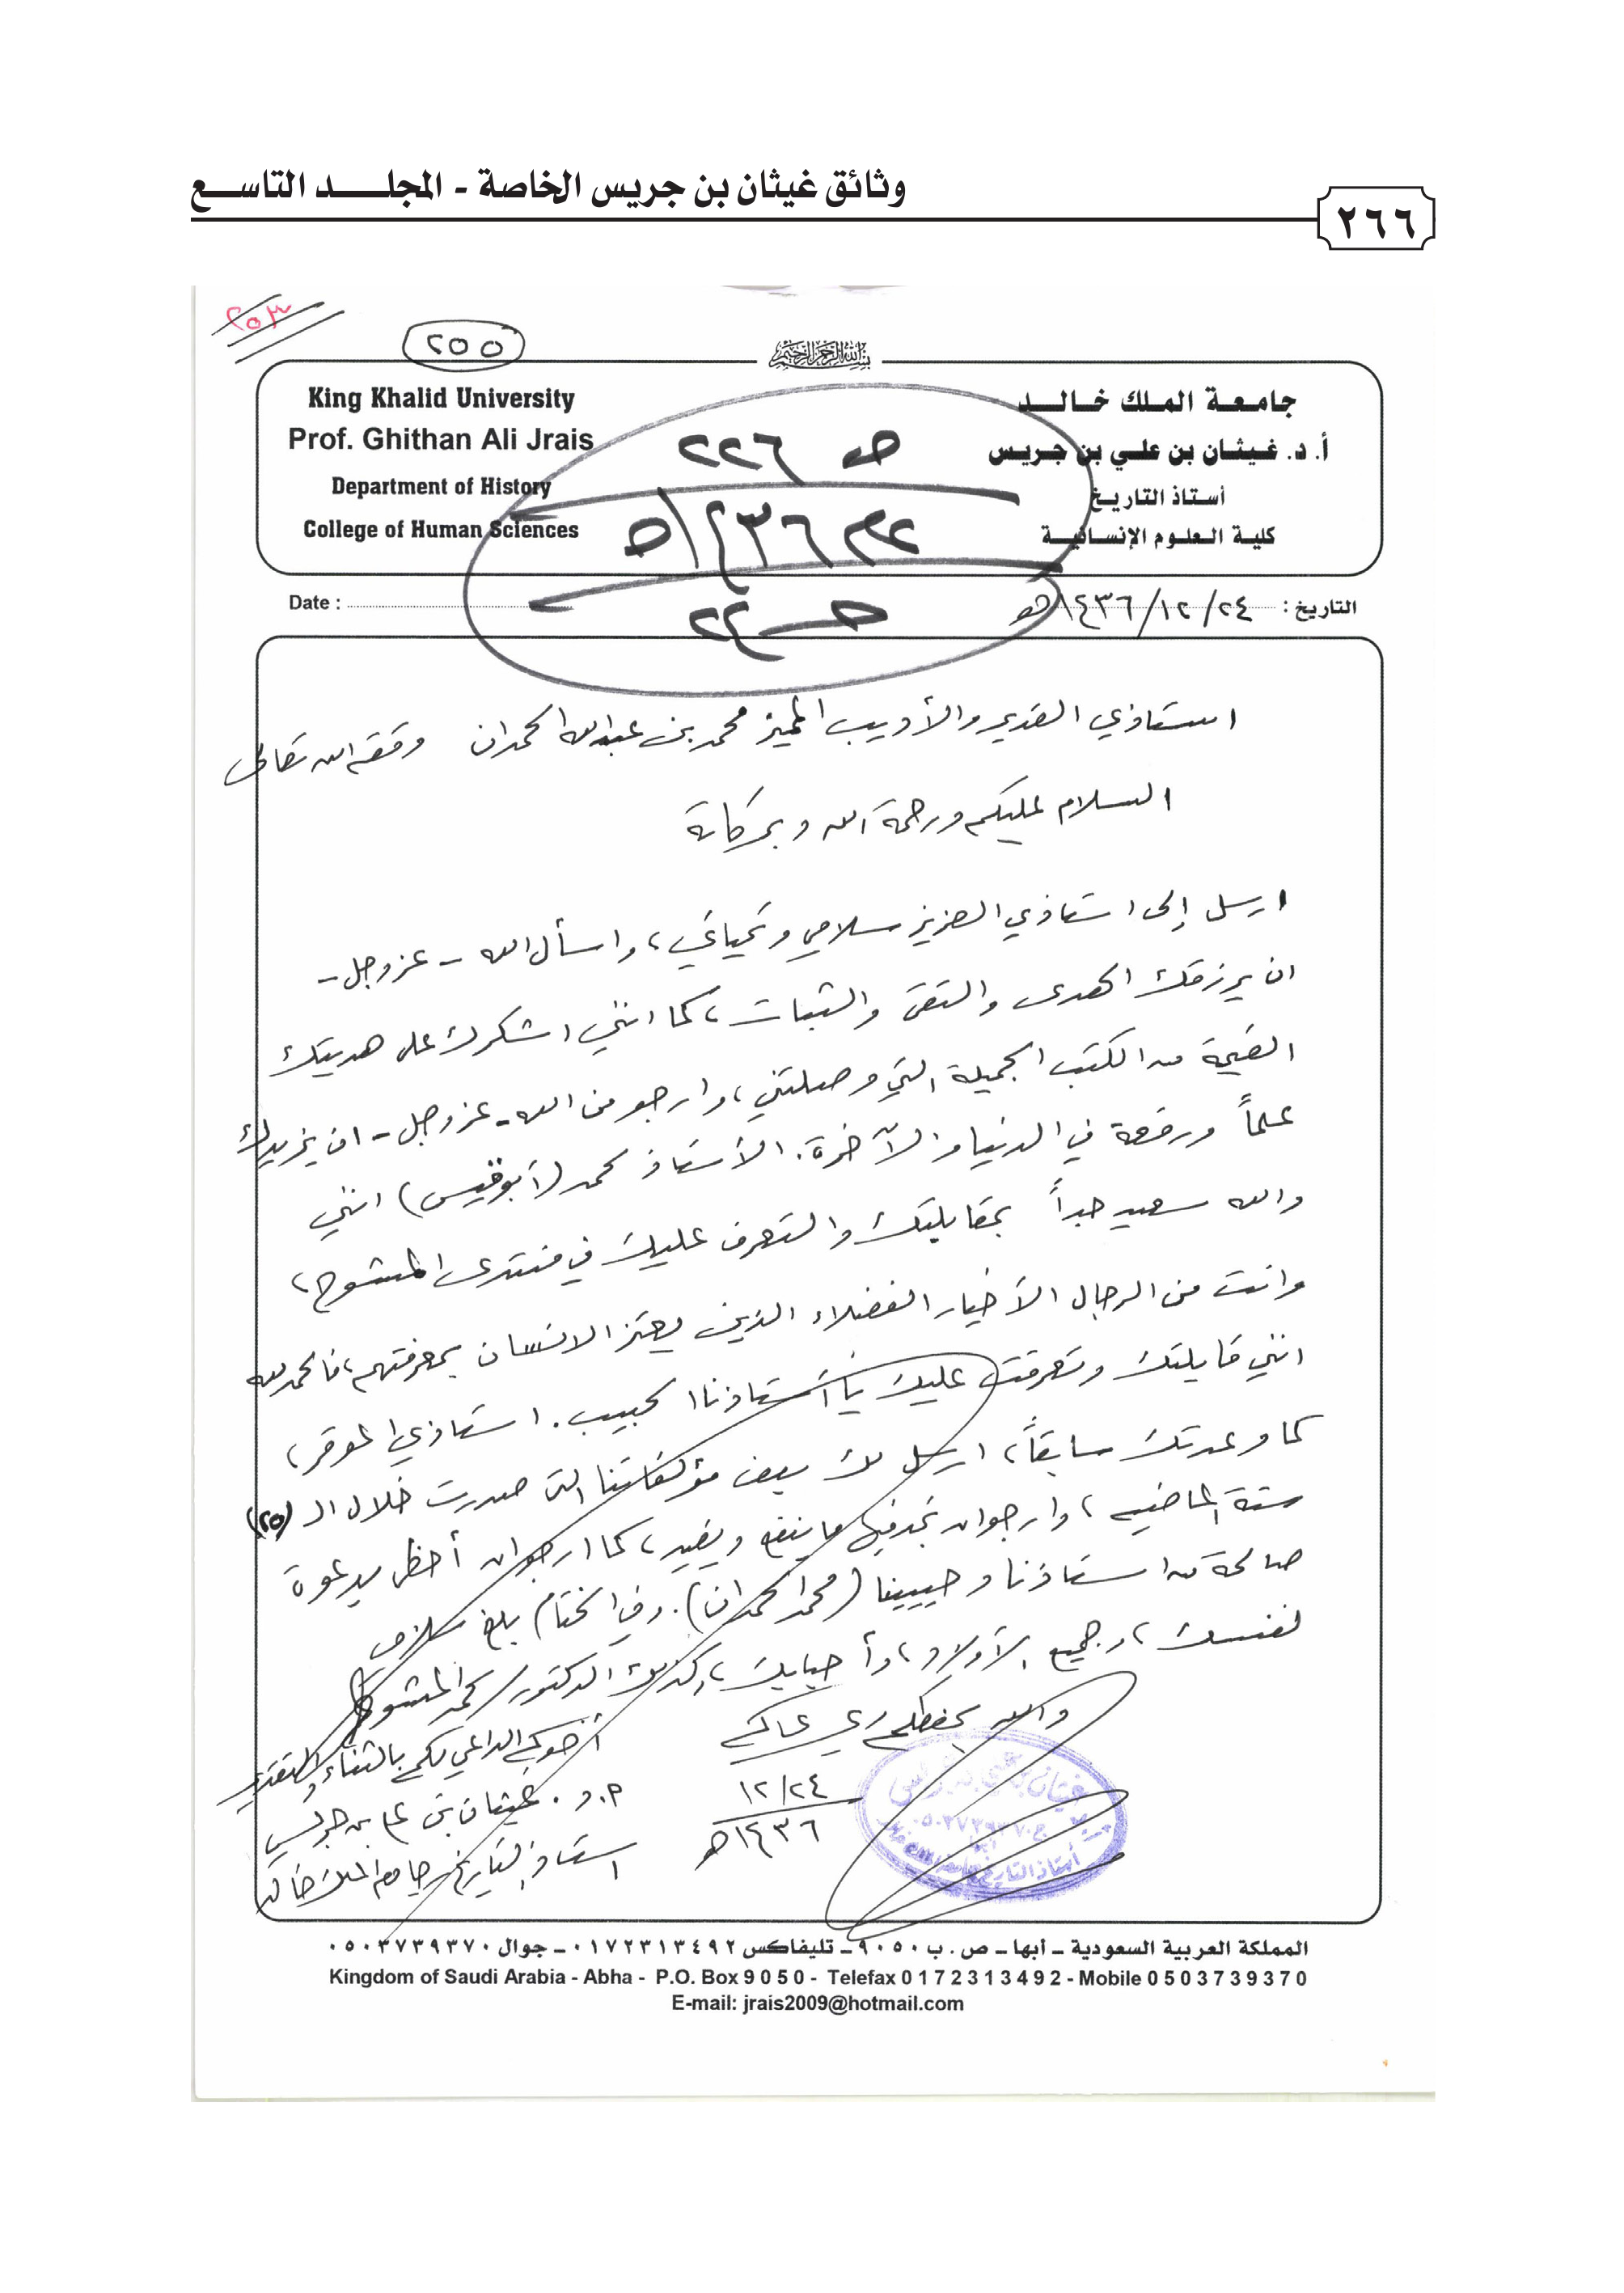 وثائق غيثان بن جريس الخاصة - المجلد التاسع
٢٦٦
٢٥٣
٢٥٥
بسم الله الرحمن الرحيم
جامعة الملك خالد
أ. د. غيثان بن علي بن جريس
أستاذ التاريخ
كلية العلوم الإنسانية
King Khalid University
Prof. Ghithan Ali Jrais
Department of History
College of Human Sciences
ص ٢٢٦
١٤٣٦هـ
التاريخ : ٢٤/ ١٢/ ١٤٣٦هـ
Date :
استاذي القدير والأديب المميز محمد بن عبدالله الحمدان وفقه الله تعالى
السلام عليكم ورحمة الله وبركاته
ارسل إلى استاذي العزيز سلامي وتحياتي، واسأل الله - عز وجل -
ان يرزقك الهدى والتقى والثبات، كما انني اشكرك على هديتك
القيمة من الكتب الجميلة التي وصلتني، وارجو من الله - عز وجل - ان يزيدك
علماً ورفعة في الدنيا والآخرة. الأستاذ محمد (أبو قيس) انني
والله سعيد جداً بمقابلتك والتعرف عليك في منتدى المشوح،
وانت من الرجال الأخيار الفضلاء الذين يعتز الانسان بمعرفتهم، فالحمد لله
انني قابلتك وتعرفت عليك يا أستاذنا الحبيب. استاذي الموقر،
كما وعدتك سابقاً، ارسل لك بعض مؤلفاتنا التي صدرت خلال الـ (٢٥)
سنة الماضية، وارجو ان تجد فيها ما ينفع ويفيد، كما ارجو ان أحظى بدعوة
صالحة من استاذنا وحبيبنا (محمد الحمدان). وفي الختام بلغ سلامي
لنفسك، وجميع الأولاد، وأحبابك، كذلك الدكتور محمد المشوح
والله يحفظكم ويرعاكم
أخوكم الداعي لكم بالثناء والتقدير
٢٤/ ١٢
١٤٣٦هـ
أ. د. غيثان بن علي بن جريس
استاذ التاريخ بجامعة الملك خالد
المملكة العربية السعودية – أبها – ص. ب ٩٠٥٠ – تليفاكس ٠١٧٢٣١٣٤٩٢ – جوال ٠٥٠٣٧٣٩٣٧٠
Kingdom of Saudi Arabia - Abha - P.O. Box 9 0 5 0 - Telefax 0 1 7 2 3 1 3 4 9 2 - Mobile 0 5 0 3 7 3 9 3 7 0
E-mail: jrais2009@hotmail.com